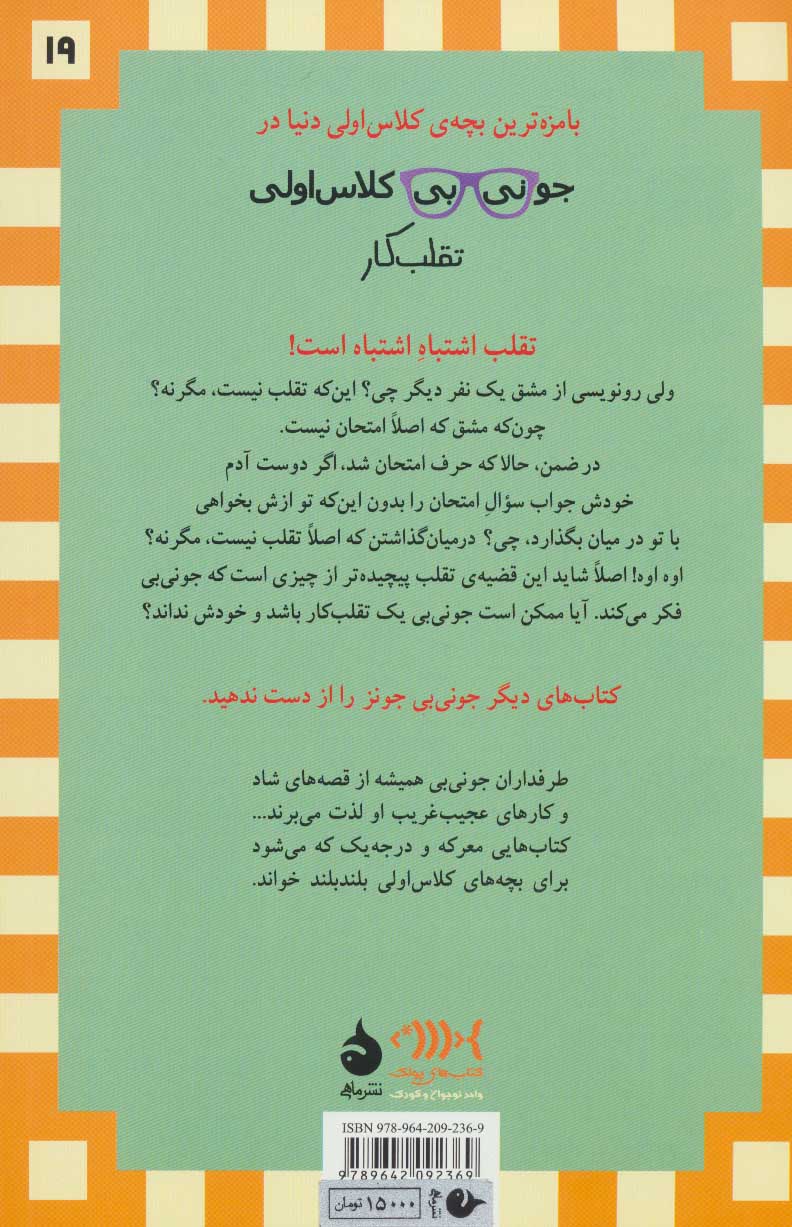 ۱۹
بامزه‌ترین بچه‌ی کلاس‌اولی دنیا در
جونی بی کلاس‌اولی
تقلب‌کار
تقلب اشتباهِ اشتباه است!
ولی رونویسی از مشق یک نفر دیگر چی؟ این‌که تقلب نیست، مگرنه؟
چون‌که مشق که اصلاً امتحان نیست.
در ضمن، حالا که حرف امتحان شد، اگر دوست آدم
خودش جواب سؤالِ امتحان را بدون این‌که تو ازش بخواهی
با تو در میان بگذارد، چی؟ درمیان‌گذاشتن که اصلاً تقلب نیست، مگرنه؟
اوه اوه! اصلاً شاید این قضیه‌ی تقلب پیچیده‌تر از چیزی است که جونی‌بی
فکر می‌کند. آیا ممکن است جونی‌بی یک تقلب‌کار باشد و خودش نداند؟
کتاب‌های دیگر جونی‌بی جونز را از دست ندهید.
طرفداران جونی‌بی همیشه از قصه‌های شاد
و کارهای عجیب‌غریب او لذت می‌برند...
کتاب‌هایی معرکه و درجه‌یک که می‌شود
برای بچه‌های کلاس‌اولی بلندبلند خواند.
کتاب‌های پولک
واحد نوجوان و کودک
نشر ماهی
ISBN 978-964-209-236-9
9 789642 092369
۱۵۰۰۰ تومان
نشر ماهی